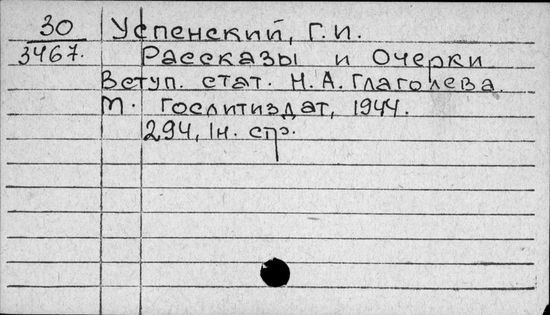 30 Успенский, Г.И.
3467. Рассказы и Очерки
Вступ. стат. Н.А. Глаголева.
М. Гослитиздат, 1944.
294, 1н. стр.